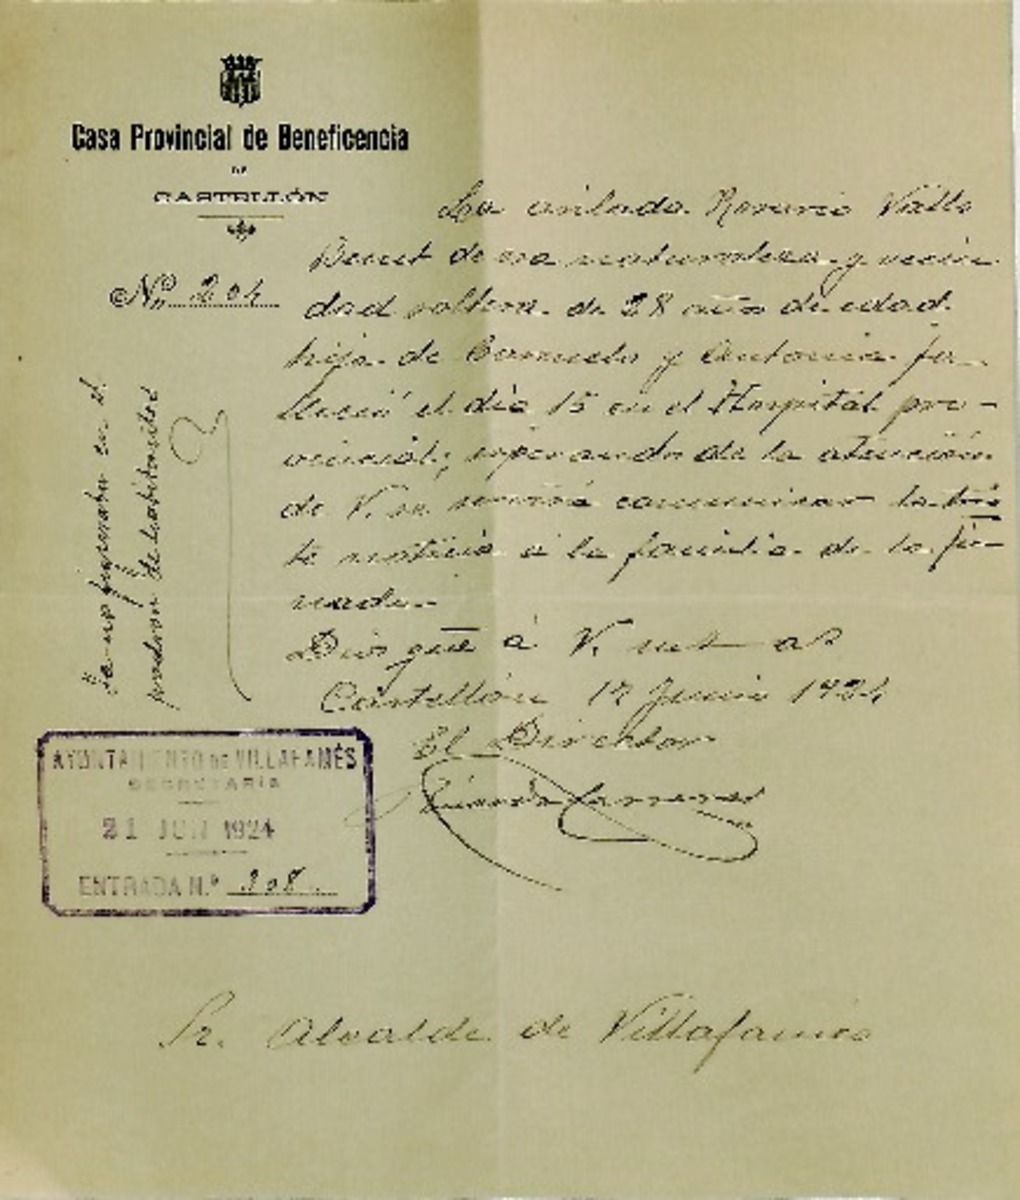 Casa Provincial de Beneficencia
DE
CASTELLÓN
Nº 204
La asilada Rosario Valls
Benet de esa naturaleza y vecin
dad soltera de 28 años de edad
hija de Carmelo y Antonia fa-
lleció el dia 15 en el Hospital pro-
vincial; esperando de la atención
de V. se servirá comunicar la tris
te noticia a la familia de la fi-
nada.
Dios gue á V. as
Castellón 17 Junio 1924
El Director
Sr. Alcalde de Villafamés
padron de habitantes
AYUNTAMIENTO DE VILLAFAMÉS
SECRETARIA
21 JUN 1924
ENTRADA N.º 308